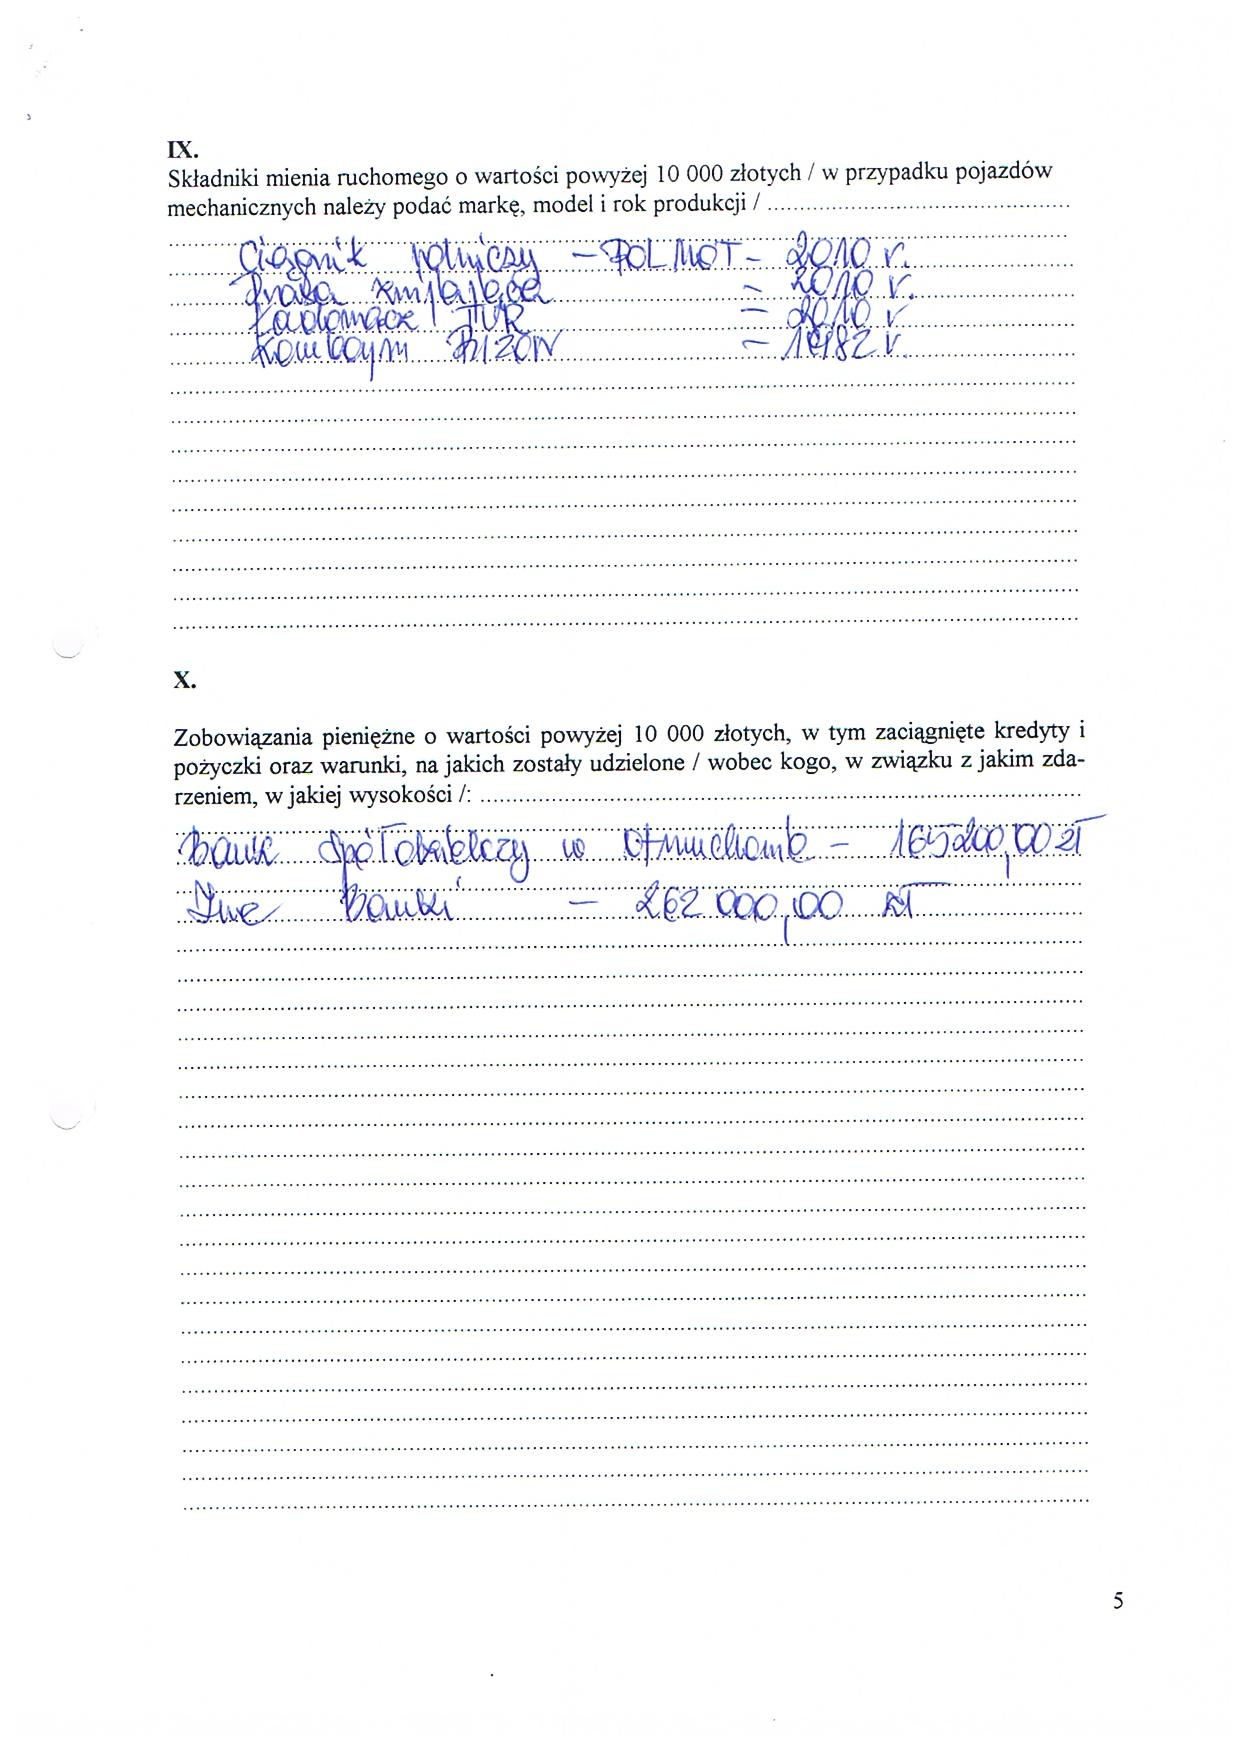 IX.
Składniki mienia ruchomego o wartości powyżej 10 000 złotych / w przypadku pojazdów
mechanicznych należy podać markę, model i rok produkcji / ..........................................
Ciągnik rolniczy – POLMOT – 2010 r.
Prasa zwijająca – 2010 r.
Ładowacz TUR – 2010 r
Kombajn BIZON – 1982 r.
X.
Zobowiązania pieniężne o wartości powyżej 10 000 złotych, w tym zaciągnięte kredyty i
pożyczki oraz warunki, na jakich zostały udzielone / wobec kogo, w związku z jakim zda-
rzeniem, w jakiej wysokości /: ..........................................
Bank Spółdzielczy w Otmuchowie – 165200,00 zł
Inne Banki – 262 000,00 zł
5